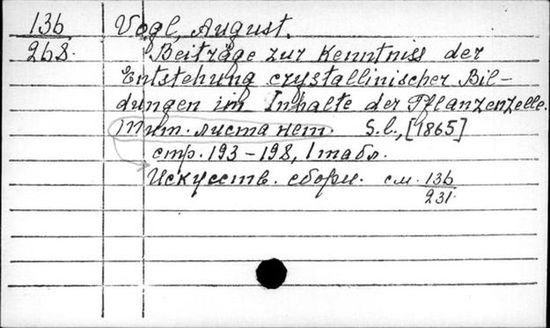 136 Vogl, August.
268. Beiträge zur Kenntniss der
Entstehung crystallinischer Bil-
dungen im Inhalte der Pflanzenzelle.
Тит. листа нет. S.l., [1865]
стр. 193-198, 1 табл.
Искусств. сборн. см. 136
231.